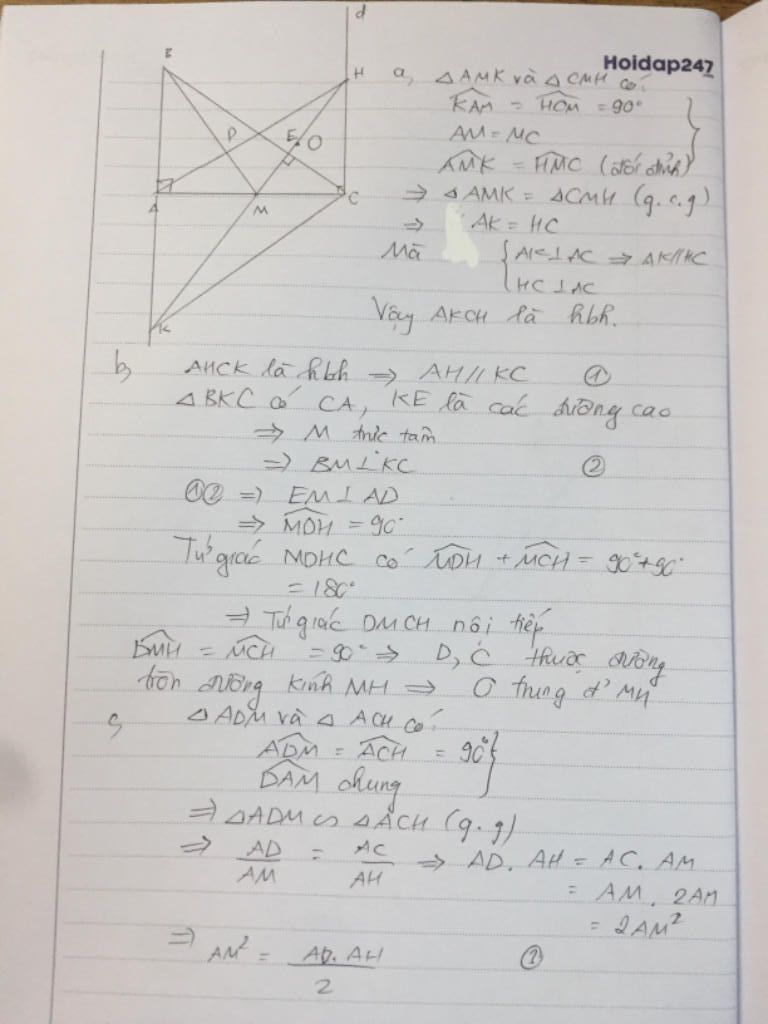 d
B
H
Hoidap247
D
E
O
A
M
C
K
a, △AMK và △CMH có:
KAM = HCM = 90°
AM = MC
AMK = HMC (đối đỉnh)
⇒ △AMK = △CMH (g.c.g)
⇒ AK = HC
Mà { AK ⊥ AC ⇒ AK // HC
HC ⊥ AC
Vậy AKCH là hbh.
b, AHCK là hbh ⇒ AH // KC ①
△BKC có CA, KE là các đường cao
⇒ M trực tâm
⇒ BM ⊥ KC ②
①② ⇒ BM ⊥ AD
⇒ MDH = 90°
Tứ giác MDHC có MDH + MCH = 90° + 90°
= 180°
⇒ Tứ giác DMCH nội tiếp
DMH = MCH = 90° ⇒ D, C thuộc đường
tròn đường kính MH ⇒ O trung đ' MH
c, △ADM và △ACH có:
ADM = ACH = 90° }
DAM chung
⇒ △ADM ∽ △ACH (g.g)
⇒ AD/AM = AC/AH ⇒ AD. AH = AC. AM
= AM. 2AM
= 2AM²
⇒ AM² = AD. AH / 2 ①